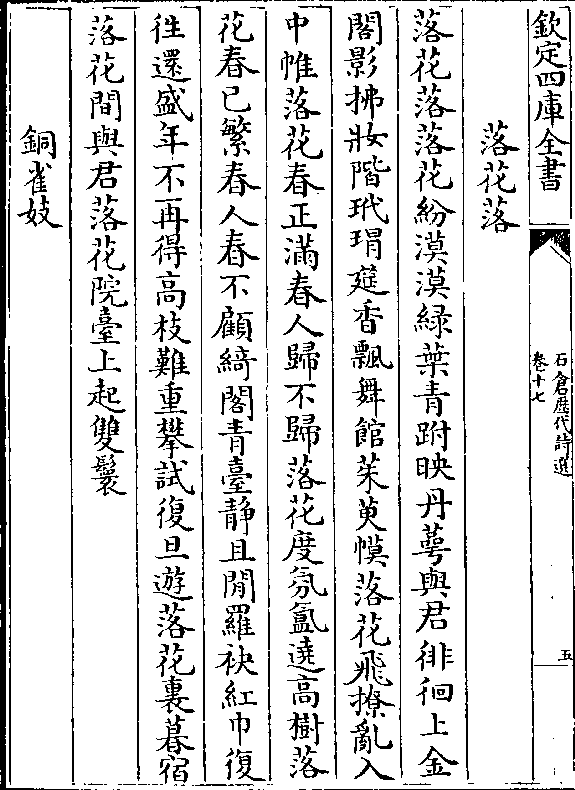 欽定四庫全書
石倉歷代詩選
卷十七
五
落花落
落花落落花紛漠漠緑葉青跗映丹蕚與君徘徊上金
閣影拂妝階玳瑁筵香飄舞館茱萸幙落花飛撩亂入
中帷落花春正滿春人歸不歸落花度氛氲遶高樹落
花春已繁春人春不顧綺閣青臺静且閒羅袂紅巾復
徃還盛年不再得高枝難重攀試復旦遊落花裏暮宿
落花間與君落花院臺上起雙鬟
銅雀妓